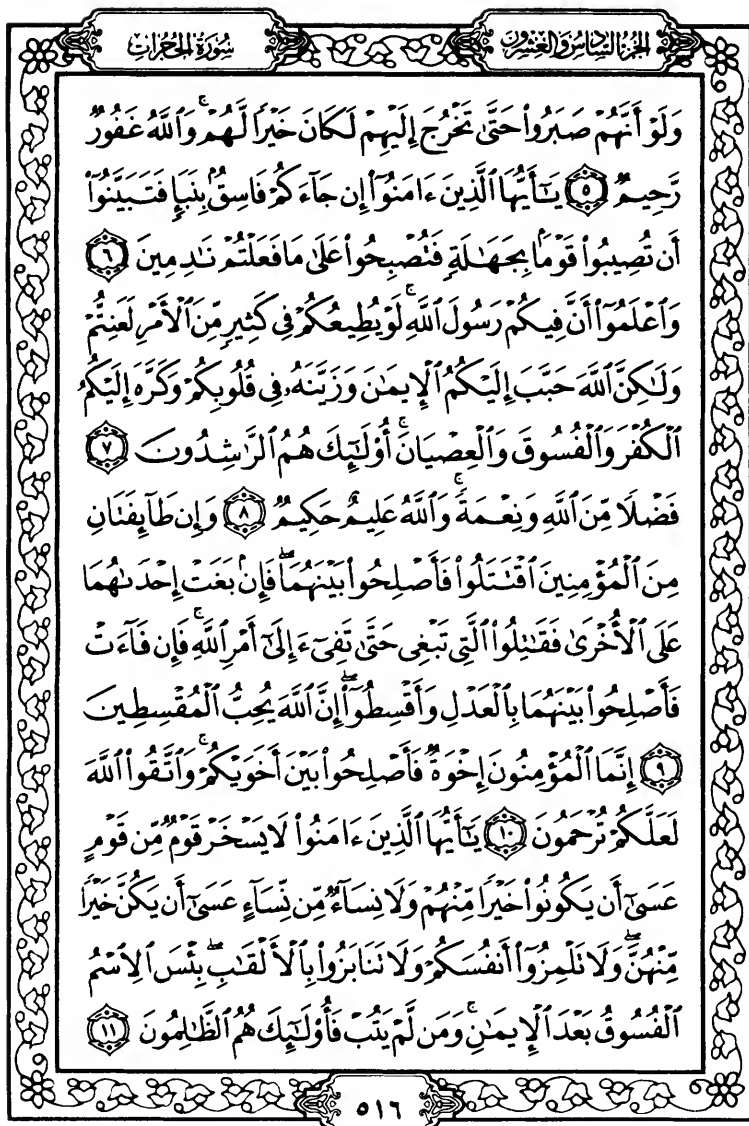 الجزء السادس والعشرون سورة الحجرات
وَلَوْ أَنَّهُمْ صَبَرُوا۟ حَتَّىٰ تَخْرُجَ إِلَيْهِمْ لَكَانَ خَيْرًا لَّهُمْ ۚ وَٱللَّهُ غَفُورٌ
رَّحِيمٌ ٥ يَـٰٓأَيُّهَا ٱلَّذِينَ ءَامَنُوٓا۟ إِن جَآءَكُمْ فَاسِقٌۢ بِنَبَإٍ فَتَبَيَّنُوٓا۟
أَن تُصِيبُوا۟ قَوْمًۢا بِجَهَـٰلَةٍ فَتُصْبِحُوا۟ عَلَىٰ مَا فَعَلْتُمْ نَـٰدِمِينَ ٦
وَٱعْلَمُوٓا۟ أَنَّ فِيكُمْ رَسُولَ ٱللَّهِ ۚ لَوْ يُطِيعُكُمْ فِى كَثِيرٍ مِّنَ ٱلْأَمْرِ لَعَنِتُّمْ
وَلَـٰكِنَّ ٱللَّهَ حَبَّبَ إِلَيْكُمُ ٱلْإِيمَـٰنَ وَزَيَّنَهُۥ فِى قُلُوبِكُمْ وَكَرَّهَ إِلَيْكُمُ
ٱلْكُفْرَ وَٱلْفُسُوقَ وَٱلْعِصْيَانَ ۚ أُو۟لَـٰٓئِكَ هُمُ ٱلرَّٰشِدُونَ ٧
فَضْلًا مِّنَ ٱللَّهِ وَنِعْمَةً ۚ وَٱللَّهُ عَلِيمٌ حَكِيمٌ ٨ وَإِن طَآئِفَتَانِ
مِنَ ٱلْمُؤْمِنِينَ ٱقْتَتَلُوا۟ فَأَصْلِحُوا۟ بَيْنَهُمَا ۖ فَإِنۢ بَغَتْ إِحْدَىٰهُمَا
عَلَى ٱلْأُخْرَىٰ فَقَـٰتِلُوا۟ ٱلَّتِى تَبْغِى حَتَّىٰ تَفِىٓءَ إِلَىٰٓ أَمْرِ ٱللَّهِ ۚ فَإِن فَآءَتْ
فَأَصْلِحُوا۟ بَيْنَهُمَا بِٱلْعَدْلِ وَأَقْسِطُوٓا۟ ۖ إِنَّ ٱللَّهَ يُحِبُّ ٱلْمُقْسِطِينَ
٩ إِنَّمَا ٱلْمُؤْمِنُونَ إِخْوَةٌ فَأَصْلِحُوا۟ بَيْنَ أَخَوَيْكُمْ ۚ وَٱتَّقُوا۟ ٱللَّهَ
لَعَلَّكُمْ تُرْحَمُونَ ١٠ يَـٰٓأَيُّهَا ٱلَّذِينَ ءَامَنُوا۟ لَا يَسْخَرْ قَوْمٌ مِّن قَوْمٍ
عَسَىٰٓ أَن يَكُونُوا۟ خَيْرًا مِّنْهُمْ وَلَا نِسَآءٌ مِّن نِّسَآءٍ عَسَىٰٓ أَن يَكُنَّ خَيْرًا
مِّنْهُنَّ ۖ وَلَا تَلْمِزُوٓا۟ أَنفُسَكُمْ وَلَا تَنَابَزُوا۟ بِٱلْأَلْقَـٰبِ ۖ بِئْسَ ٱلِٱسْمُ
ٱلْفُسُوقُ بَعْدَ ٱلْإِيمَـٰنِ ۚ وَمَن لَّمْ يَتُبْ فَأُو۟لَـٰٓئِكَ هُمُ ٱلظَّـٰلِمُونَ ١١
٥١٦